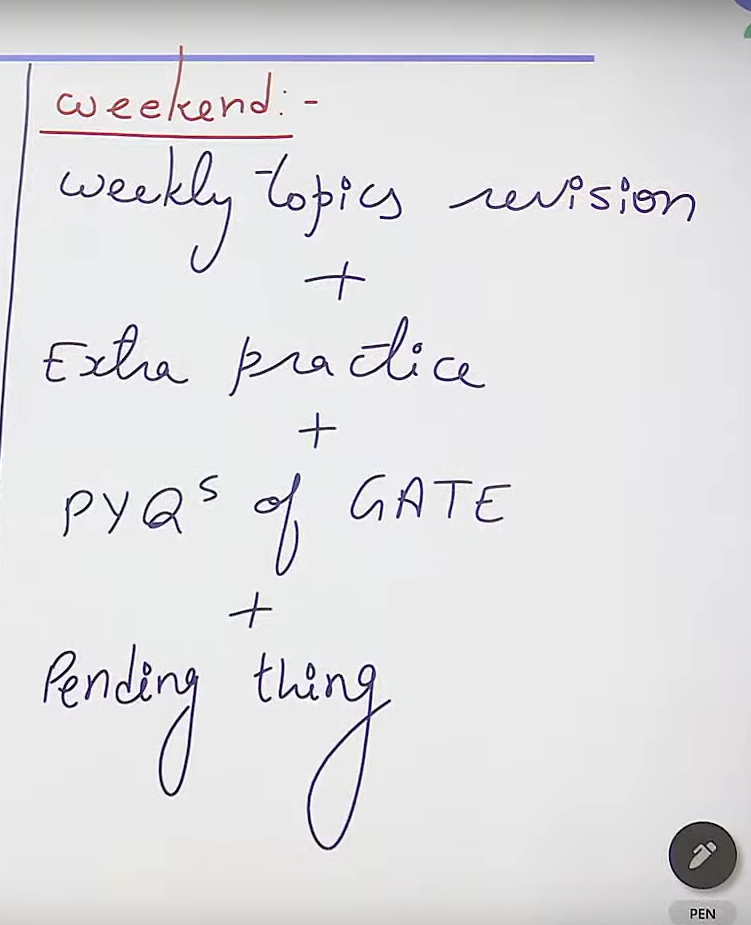 weekend:-
weekly topics revision
+
Extra practice
+
PYQs of GATE
+
Pending thing
PEN